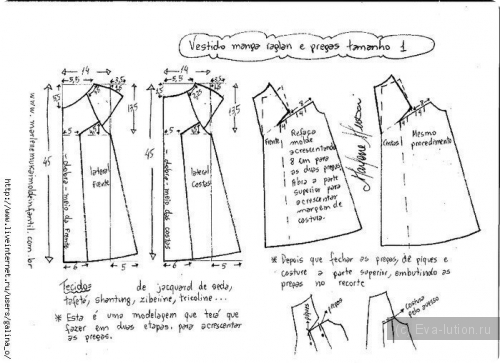 Vestido manga raglan e pregas tamanho 1
14
5,5
3,5
5,5
13,5
45
5
lateral
Frente
dobra - meio da frente
6
5
14
5,5
3,5
13,5
45
5
lateral
Costas
dobra - meio das costas
6
5
www.marlenemukaimoldeinfantil.com.br
http://www.liveinternet.ru/users/galina_o/
Frente
Refaça
molde
acrescentando
8 cm para
as duas pregas
Abra a parte
superior para
acrescentar
margem de
costura.
Marlene Mukai
Costas
Mesmo
procedimento
Tecidos de jacquard de seda,
tafetá, shantung, zibeline, tricoline...
* Esta é uma modelagem que terá que
fazer em duas etapas, para acrescentar
as pregas.
* Depois que fechar as pregas, dê piques e
costure a parte superior, embutindo as
pregas no recorte
piques
pregas
costura
pelo avesso
(c) Eva-lution.ru